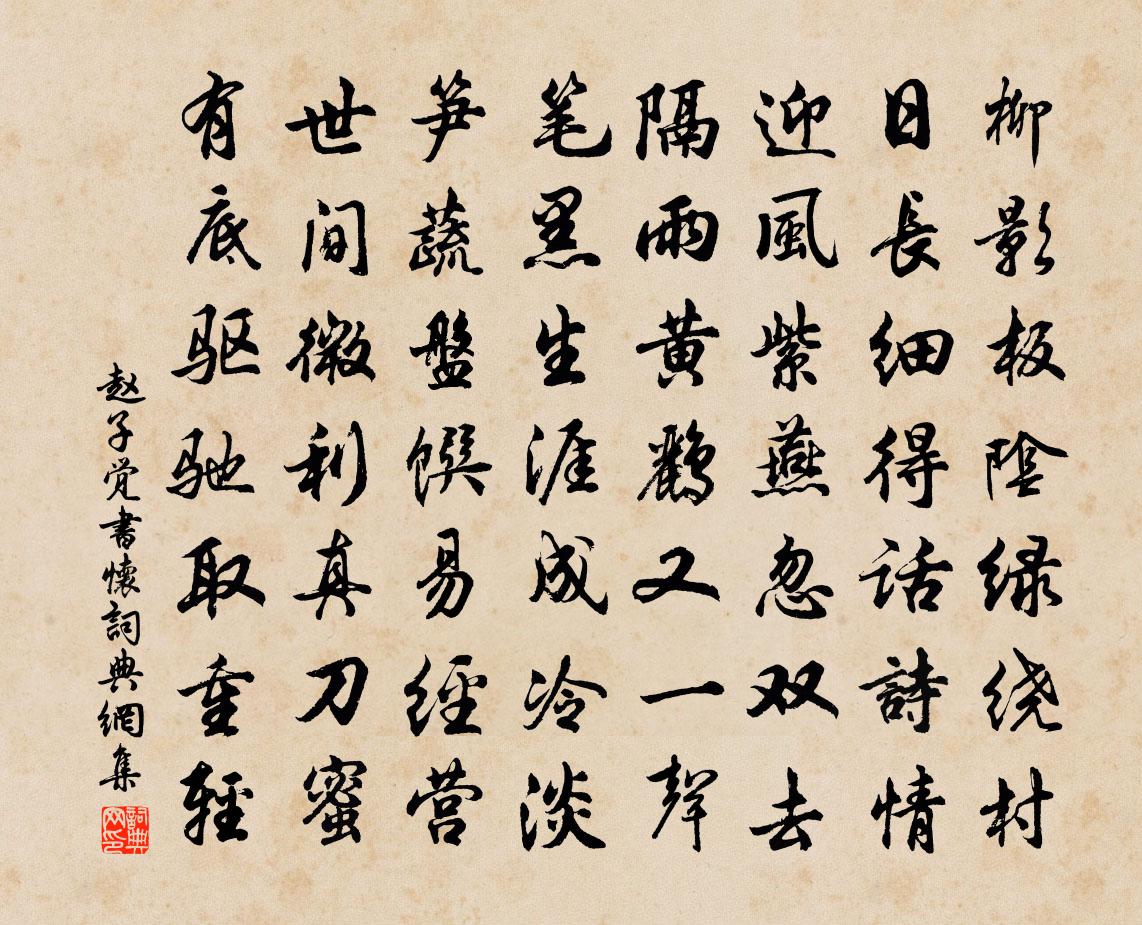 柳影板陰緑绕村
日長细得话詩情
迎風紫燕忽双去
隔雨黄鸝又一聲
笔墨生涯成冷淡
笋蔬盤馔易經营
世间微利真刀蜜
有底驱驰取重輕
赵子觉書懷詞典網集
詞典网印